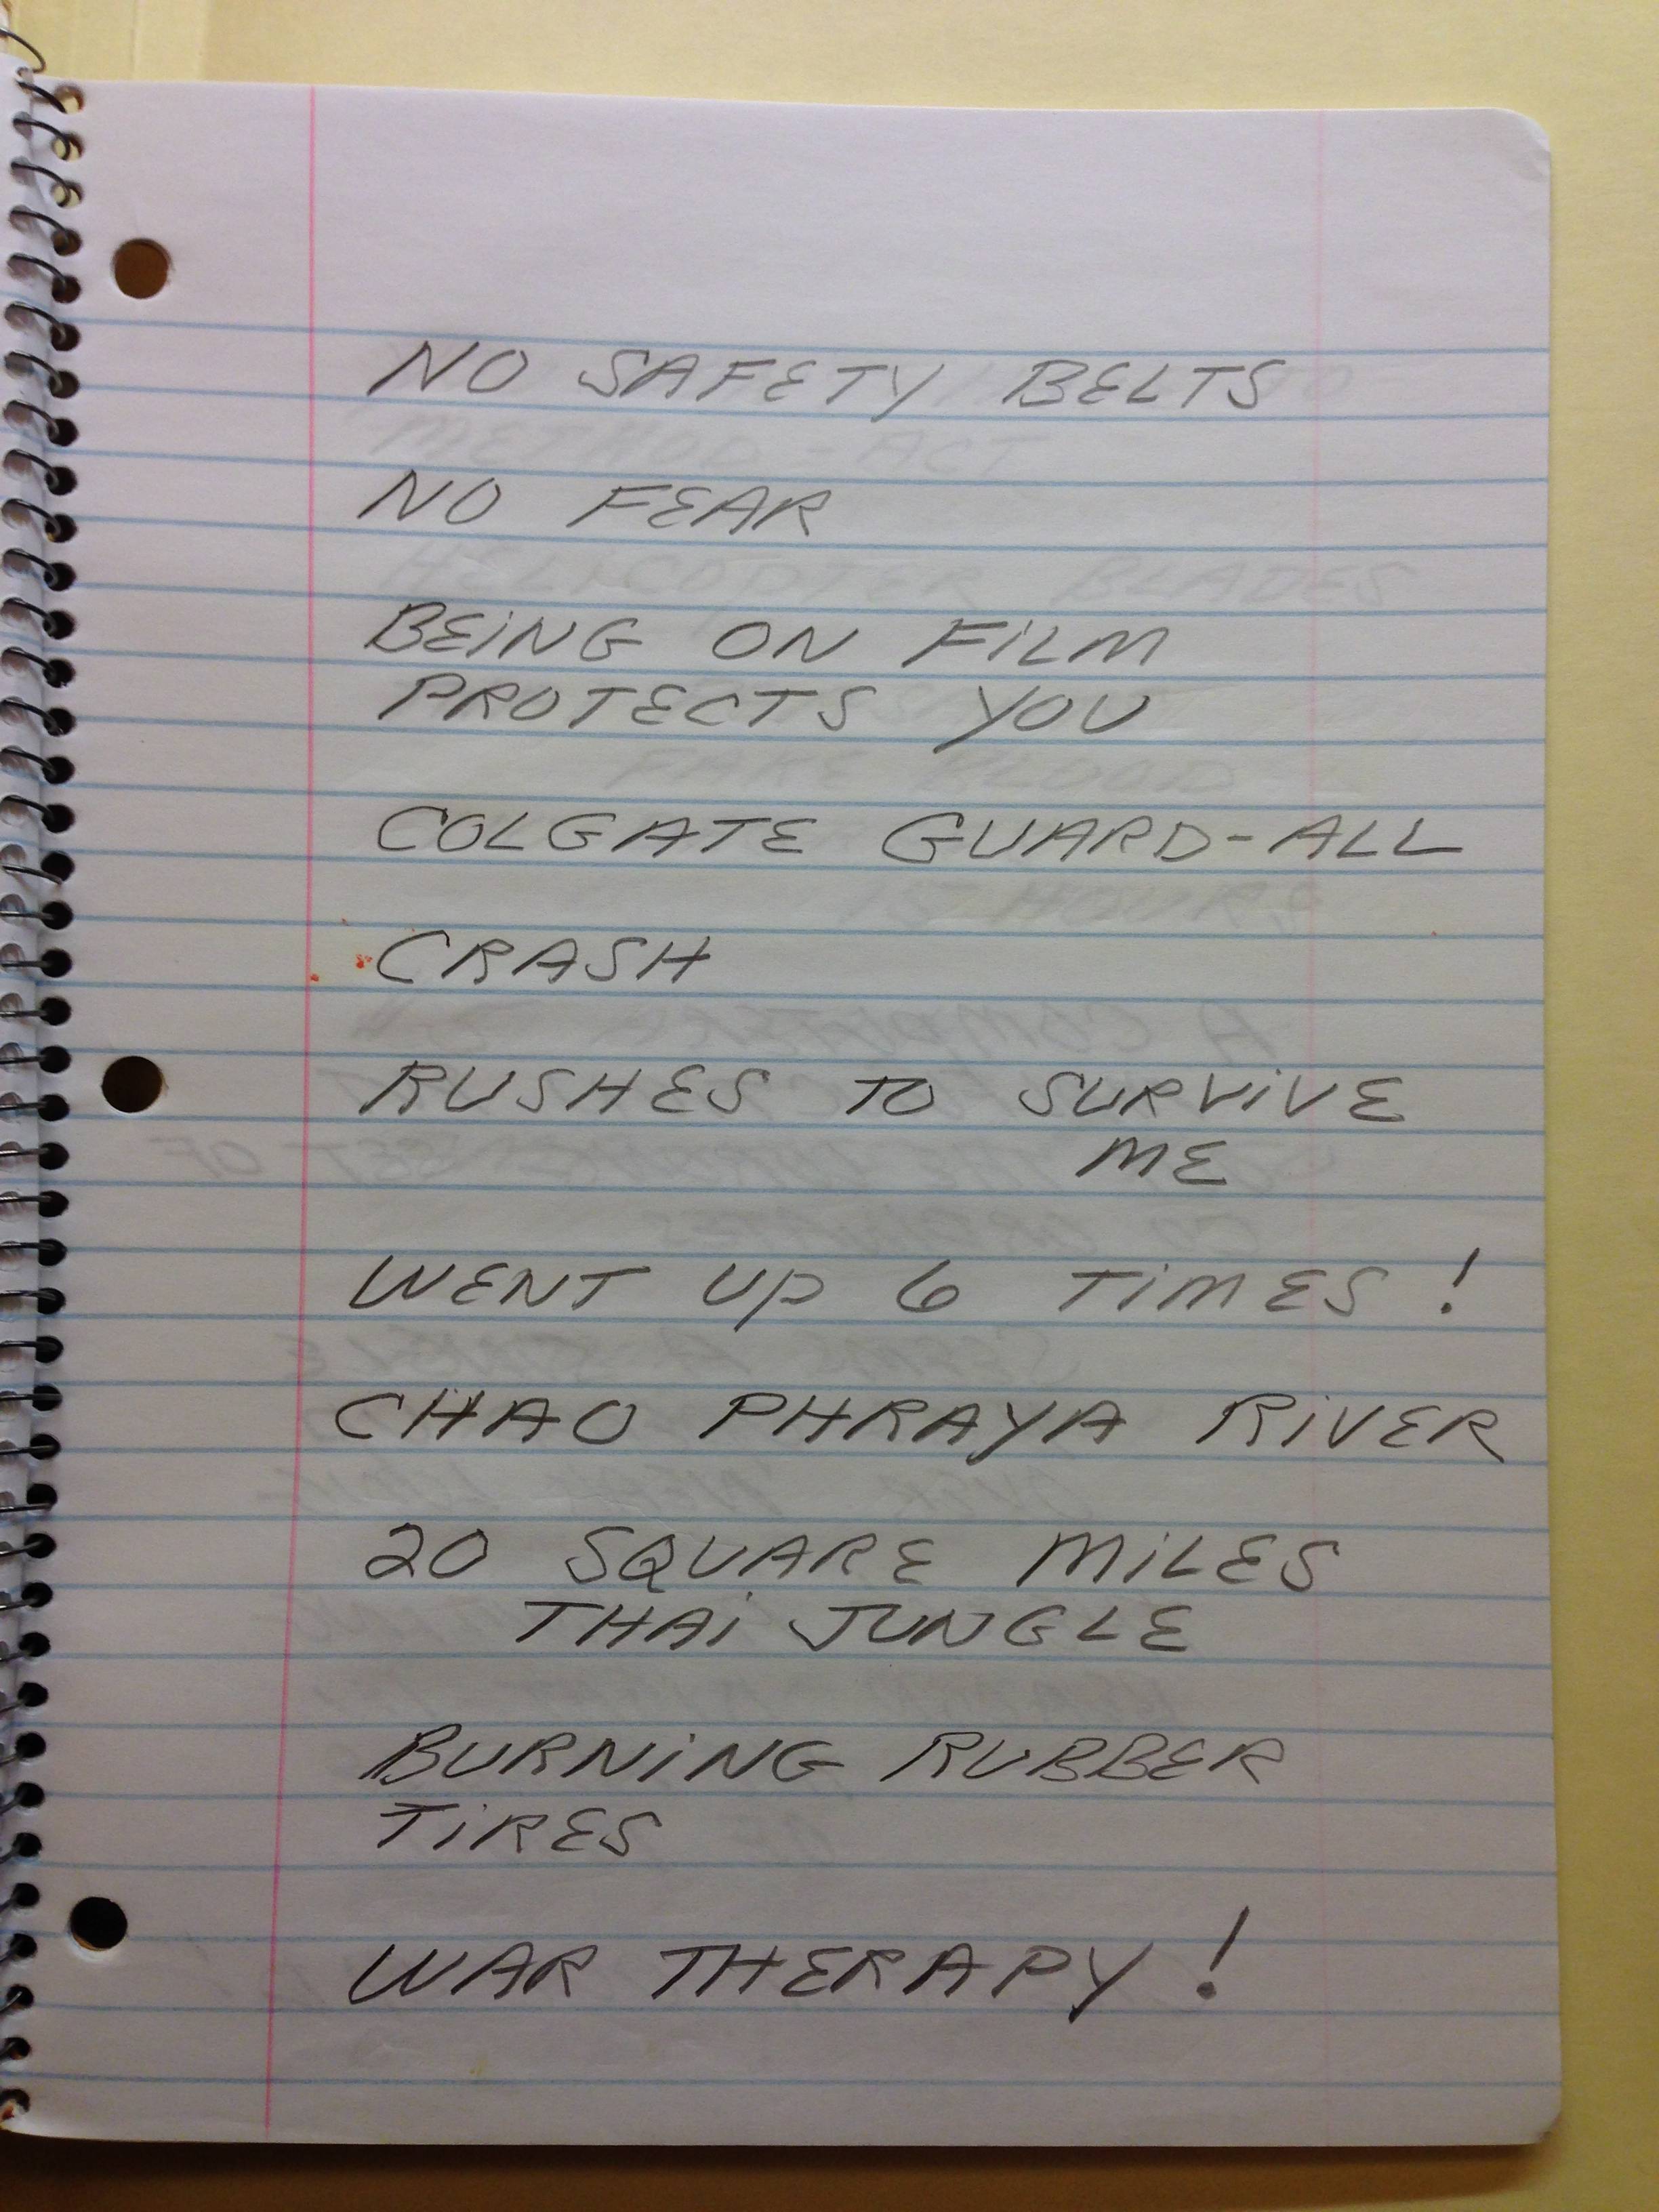 NO SAFETY BELTS
NO FEAR
BEING ON FILM
PROTECTS YOU
COLGATE GUARD-ALL
CRASH
RUSHES TO SURVIVE
ME
WENT UP 6 TIMES!
CHAO PHRAYA RIVER
20 SQUARE MILES
THAI JUNGLE
BURNING RUBBER
TIRES
WAR THERAPY!